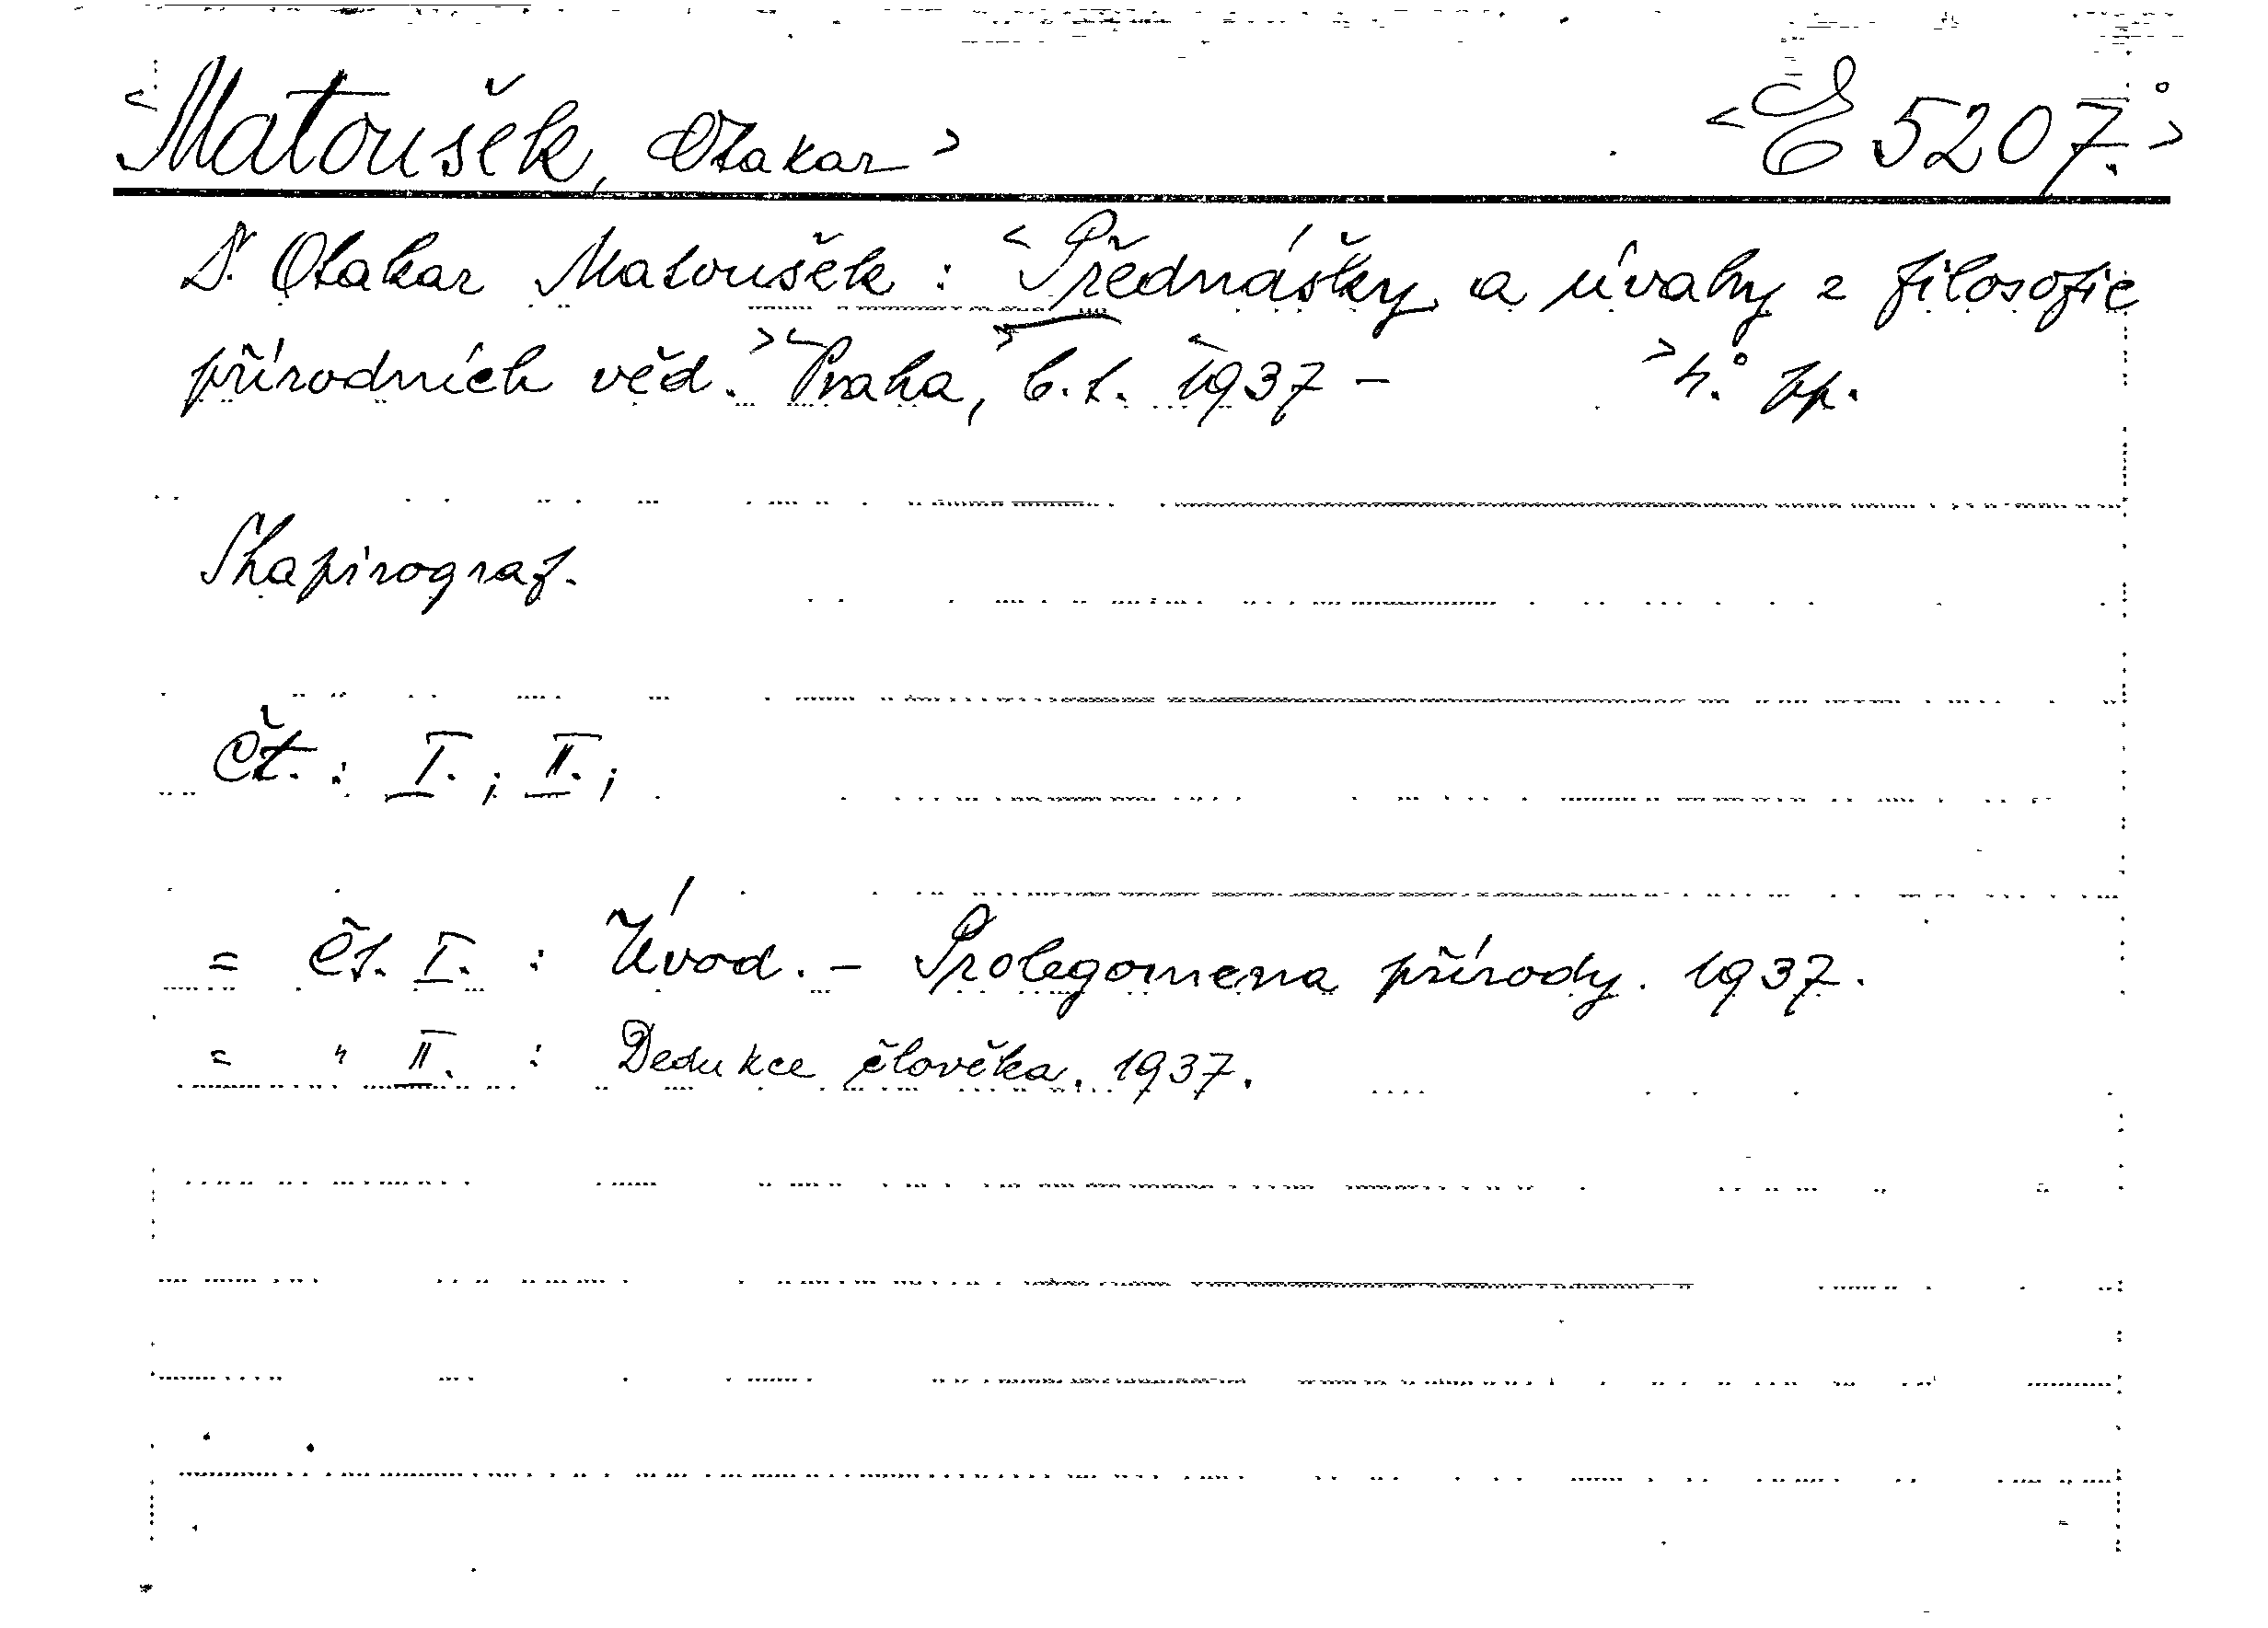 <Matoušek, Otakar> <E 5207.>
Dr. Otakar Matoušek : <Přednášky a úvahy z filosofie
přírodních věd.> <Praha,> b.t. <1937 - >4.° pp.
Shapirograf.
Čt. : I. ; II. ;
= Čt. I. : Úvod. - Prolegomena přírody. 1937.
= " II. : Dedukce člověka. 1937.